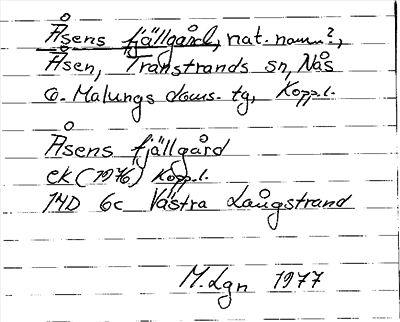 Åsens fjällgård, nat. namn?,
Åsen, Transtrands sn, Nås
o. Malungs doms. tg, Kopp.l.
Åsens fjällgård
ek (1976) Kopp.l.
14D 6c Västra Långstrand
M. Lgn 1977